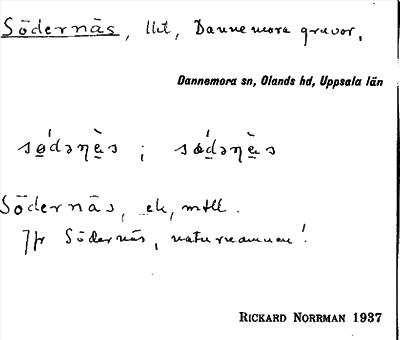 Södernäs, lht, Dannemora gruvor.
Dannemora sn, Olands hd, Uppsala län
Södernäs, ek, mtll.
Jfr Södernäs, naturnamnen!
RICKARD NORRMAN 1937